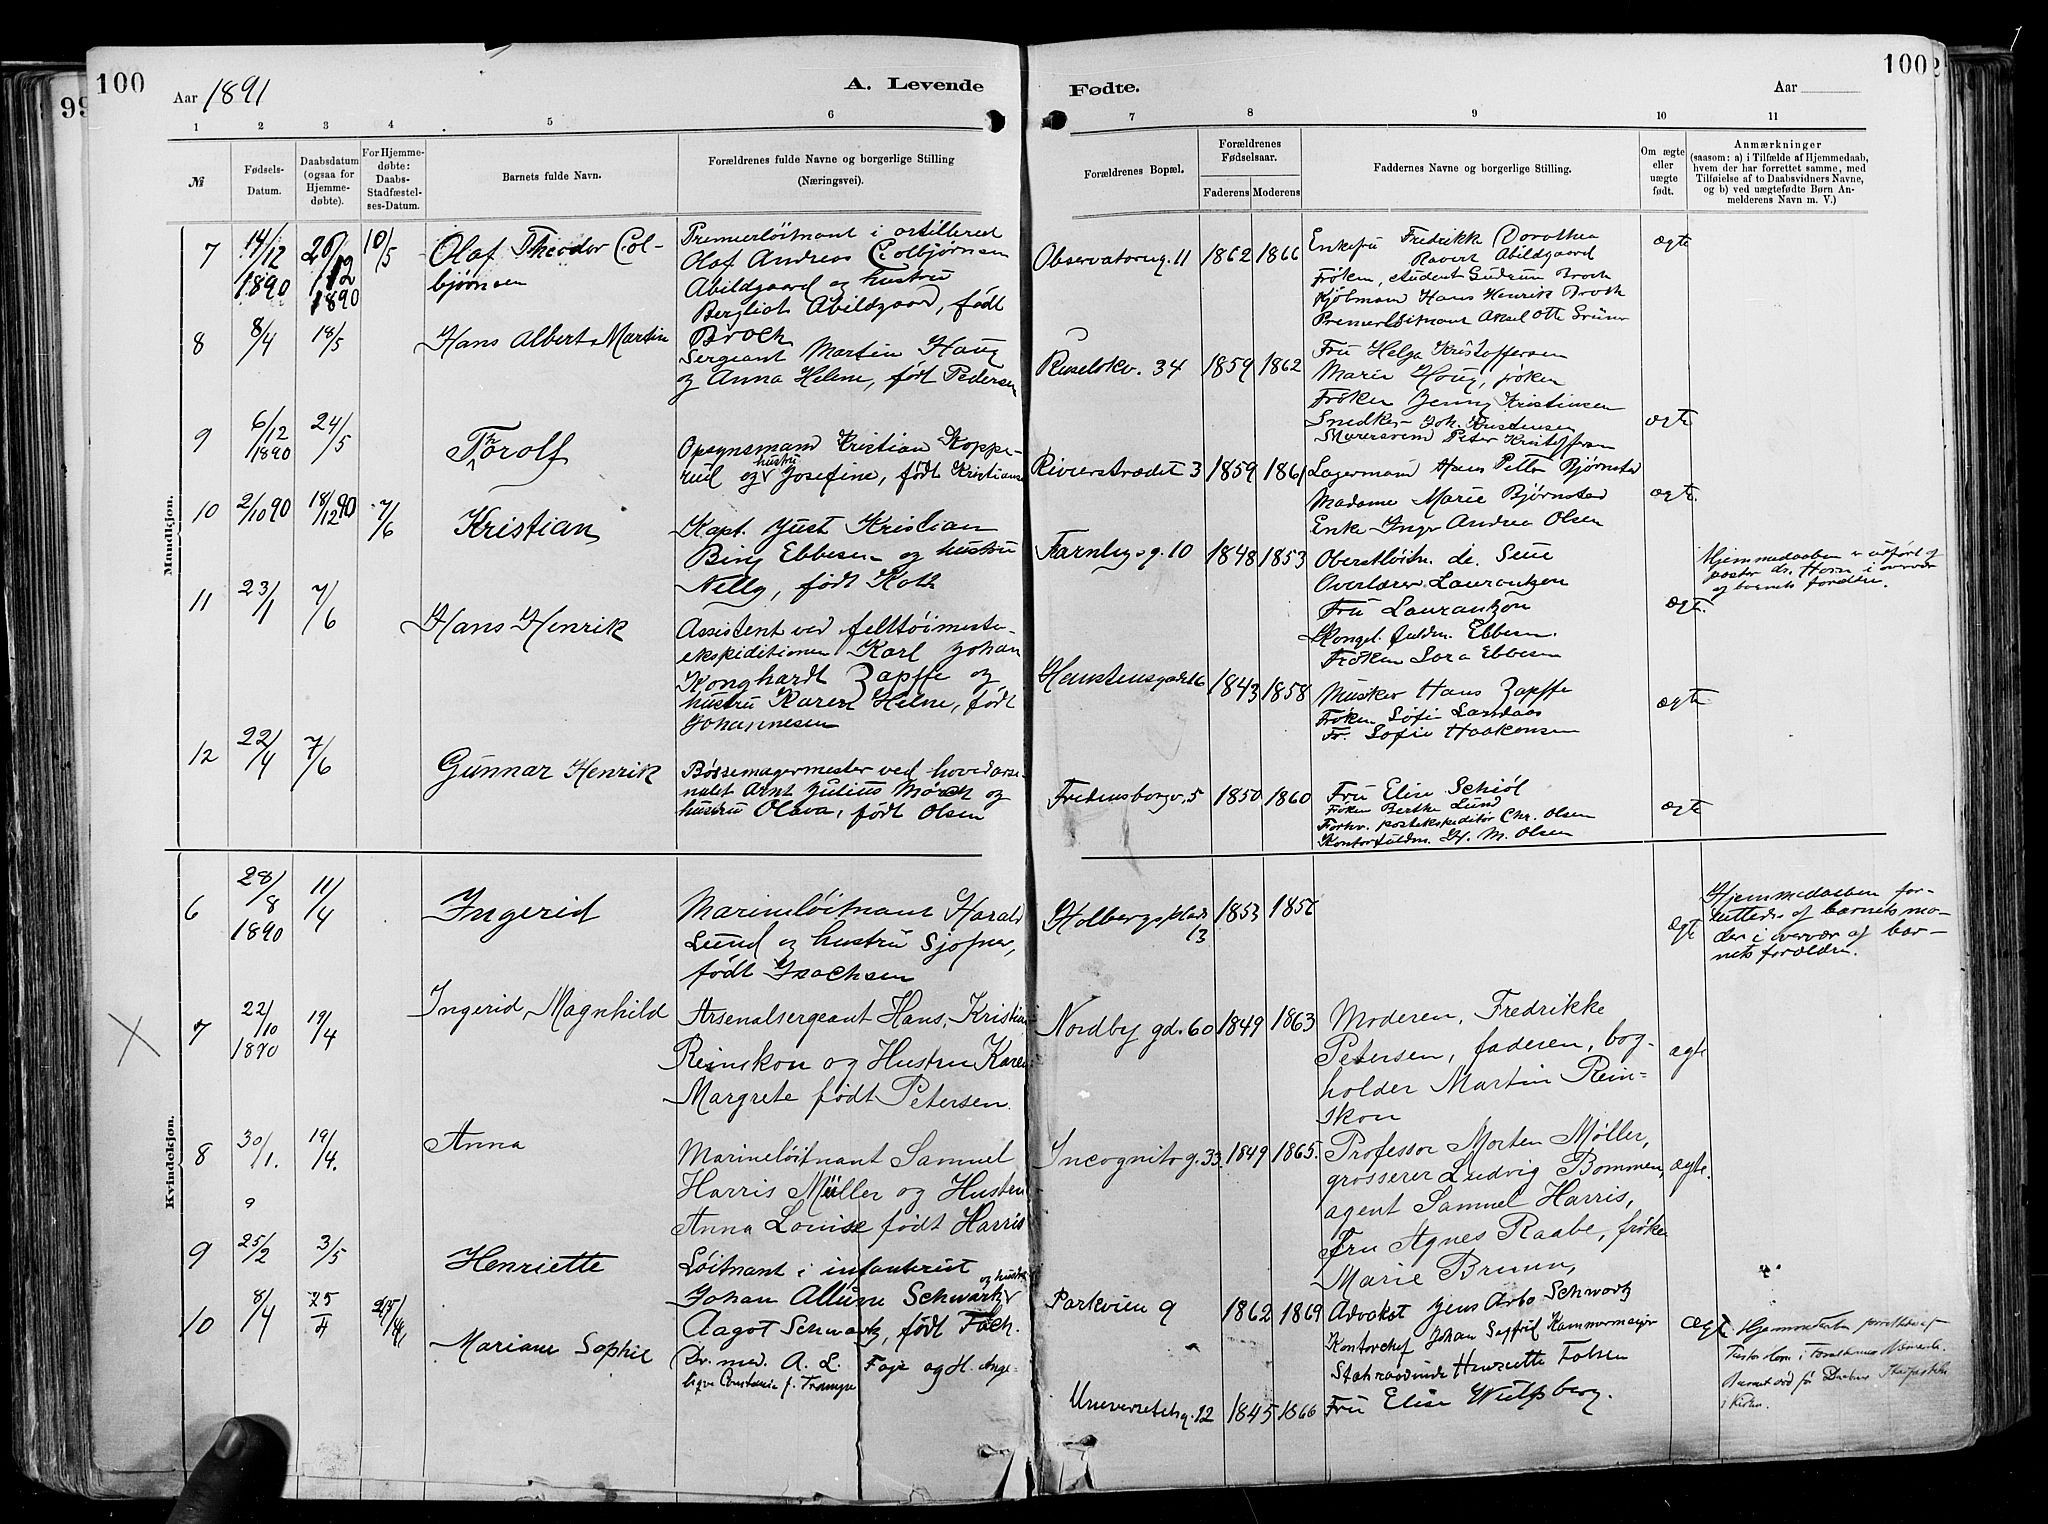 100
Aar 1891
A. Levende
Fødte.
Aar
100
99
1 2 3 4 5 6 7 8 9 10 11
№
Fødsels-
Datum.
Daabsdatum
(ogsaa for
Hjemme-
døbte).
For Hjemme-
døbte:
Daabs-
Stadfæstel-
ses-Datum.
Barnets fulde Navn.
Forældrenes fulde Navne og borgerlige Stilling
(Næringsvei).
Forældrenes Bopæl.
Forældrenes
Fødselsaar.
Faderens Moderens
Faddernes Navne og borgerlige Stilling.
Om ægte
eller
uægte
født.
Anmærkninger
(saasom: a) i Tilfælde af Hjemmedaab,
hvem der har forrettet samme, med
Tilføielse af to Daabsvidners Navne,
og b) ved uægtefødte Børn An-
melderens Navn m. V.)
Mandkjøn.
7
14/12
1890
10/5
Olaf Theodor Col-
bjørnsen
Premierløitnant i artilleriet
Olaf Andreas Colbjørnsen
Abildgaard og hustru
Bergliot Abildgaard, født
Broch
Observatorieg. 11 1862 1866
Enkefru Fredrikk Dorothea
Ravert Abildgaard
Frøken, student Gudrun Broch
Kjøbmand Hans Henrik Broch
Premierløitnant Aksel Otto Grüner
ægte
8
8/4
18/5
Hans Albert Martin
Sergeant Martin Haug
og Anna Helene, født Pedersen
Ruseløkv. 34 1859 1862
Fru Helga Kristoffersen
Marie Houg, frøken
Frøken Jenny Kristiansen
Snedker Joh. Kristensen
Murersvend Peter Kristoffersen
ægte
9
6/12
1890
24/5
Thorolf
Opsynsmand Kristian Koppe-
rud og hustru Josefine, født Kristians
3 1859 1861
Lagermand Hans Petter Bjørnstad
Madame Marie Bjørnstad
Enke Inger Andrea Olsen
ægte
10
2/10 90
18/12 90
7/6
Kristian
Kapt. Just Kristian
Bing Ebbesen og hustru
Nelly, født Roth
Farnleysg. 10 1848 1853
Oberstløitn. de Seue
Overlærer Laurantzon
Fru Laurantzon
Kongel. fuldm. Ebbesen
Frøken Lora Ebbesen
ægte.
Hjemmedaaben er udført af
pastor dr. Horn i overvær
af barnets forældre.
11
23/1
7/6
Hans Henrik
Assistent ved felttøimester-
ekspeditionen Karl Johan
Konghardt Zapffe og
hustru Karen Helene, født
Johannesen
Haustensgade 16 1843 1858
Musiker Hans Zapffe
Frøken Sofie Landaas
Fr. Sofie Haakonsen
ægte
12
22/4
7/6
Gunnar Henrik
Bøssemagermester ved hovedarse-
nalet Arnt Julius Mørch og
hustru Olava, født Olsen
Fredensborgv. 5 1850 1860
Fru Elise Schiøl
Frøken Berthe Lund
Forhv. postekspeditør Chr. Olsen
Kontorfuldm. H. M. Olsen
ægte
Kvindekjøn.
6
28/8
1890
11/4
Ingerid
Marineløitnant Harald
Lund og hustru Sjofner,
født Isachsen
Holbergsplads
13
1853
ægte
Hjemmedaaben for-
rettedes af barnets mo-
der i overvær af bar-
nets forældre.
7
22/10
1890
19/4
Ingerid Magnhild
Arsenalsergeant Hans Kristian
Reinskou og Hustru Karen
Margrete født Petersen.
Nordby gd. 60 1849 1863
Moderen, Fredrikke
Petersen, faderen, bog-
holder Martin Rein-
skou
ægte
8
30/1.
19/4.
Anna
Marineløitnant Samuel
Harris Müller og Hustru
Anna Louise født Harris
Incognitog. 33. 1849 1865.
Professor Morten Møller,
grosserer Ludvig Bommen,
agent Samuel Harris,
Fru Agnes Raabe, frøken
Marie Bruun,
ægte.
9
9
25/2
3/5
Henriette
Løitnant i infanteriet
Johan Allum Schwartz og hustru
Aagot Schwartz, født Foch.
Parkveien 9 1862 1869
Advokat Jens Arbo Schwartz
Kontorchef Johan Sigfrid Kammermeyer
Statsraadinde Henriette Folsen
Fru Elise Wulfsberg.
ægte
10
8/4
25/4
25/4 91
Mariane Sophie
Dr. med. A. L. Faye og H. Ange-
lique Constantia f.
Universitetsg. 12 1845 1866
Hjemmedaaben forrettedes af
Pastor Horn i
i Kirken.